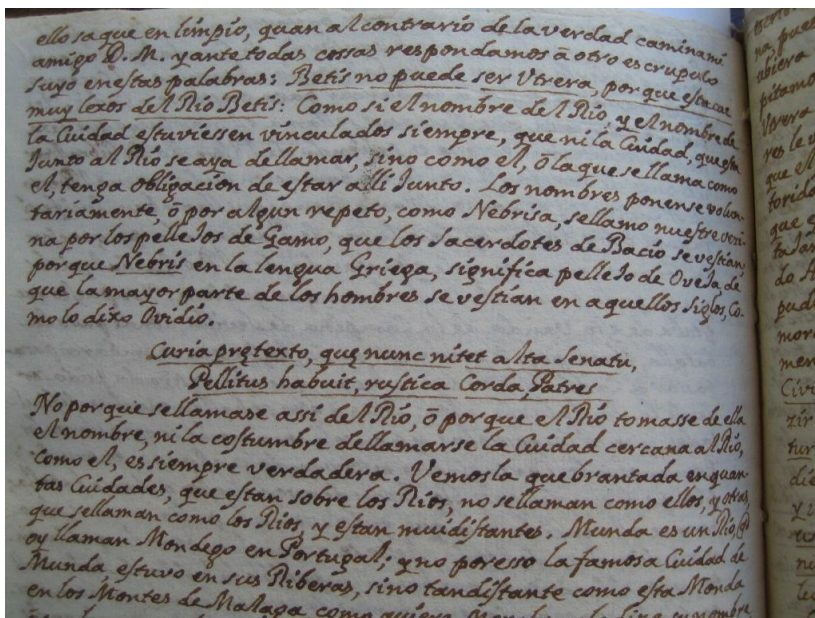 ello saque en limpio, quan al contrario de la verdad camina mi
amigo D. M. y ante todas cossas respondamos à otro escrupulo
suyo en estas palabras: Betis no puede ser Utrera, porque esta cae
muy lexos del Rio Betis: Como si el nombre del Rio, y el nombre de
la Ciudad estuviessen vinculados siempre, que ni la Ciudad, que esta
Junto al Rio se aya de llamar, sino como el, ò la que se llama como
el, tenga obligacion de estar alli Junto. Los nombres ponense volun-
tariamente, ò por algun repeto, como Nebrisa, se llamo nuestra veci-
na por los pellejos de Gamo, que los Sacerdotes de Bacio se vestian;
porque Nebris en la lengua Griega, significa pellejo de Oveja, de
que la mayor parte de los hombres se vestian en aquellos siglos, Co-
mo lo dixo Ovidio.
Curia pretexto, que nunc nitet alta Senatu,
Pellitus habuit, rustica Corda, Patres
No porque se llamase assi del Rio, ò porque el Rio tomasse de ella
el nombre, ni la costumbre de llamarse la Ciudad cercana al Rio,
como el, es siempre verdadera. Vemosla quebrantada en quan-
tas Ciudades, que estan sobre los Rios, no se llaman como ellos, y otras
que se llaman como los Rios, y estan mui distantes. Munda es un Rio,
oy llaman Mondego en Portugal; y no por esso la famosa Ciudad de
Munda, estuvo en sus Riberas, sino tan distante como esta Monda
en los Montes de Malaga como quiera